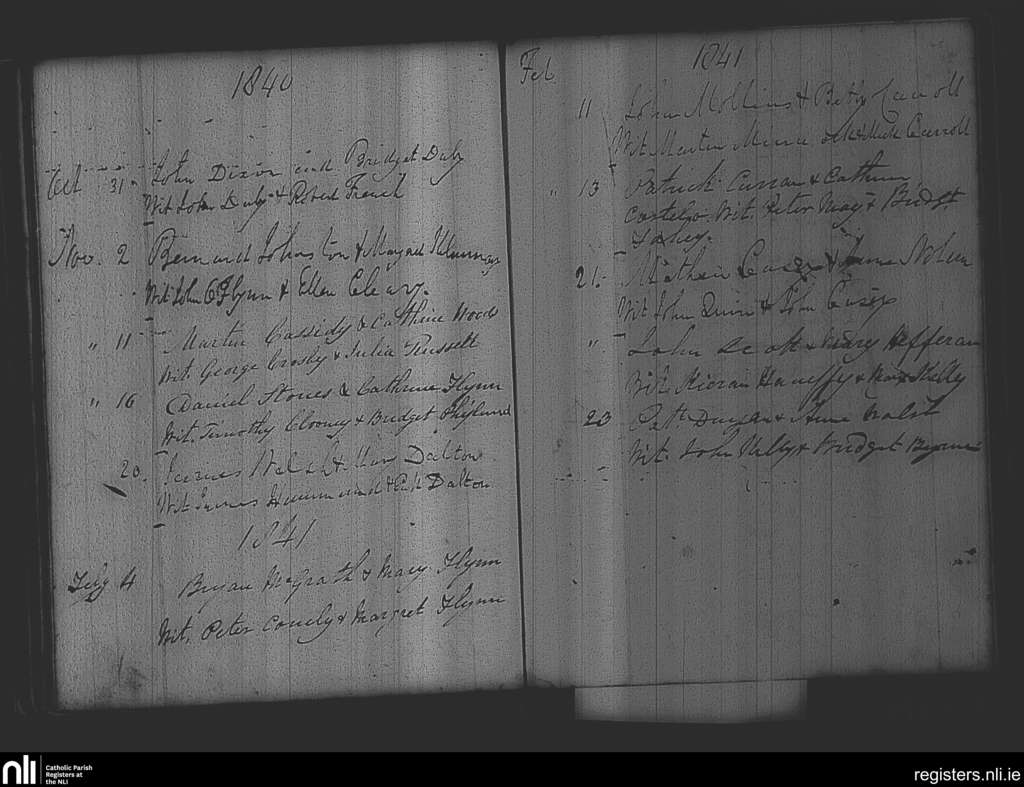 1840
Oct 31 John Dixon and Bridget Duly
Wit John Duly & Robert French
Nov. 2 Bernard Johnston & Margret
Wit John O'Flynn & Ellen Cleary.
" 11 Martin Cassidy & Cathrine Woods
Wit. George Crosby & Julia Russell
" 16 Daniel Stones & Cathrine Flynn
Wit. Timothy Clooney & Bridget
20. James Welsh & Mary Dalton
Wit James Hammond & Dalton
1841
Feby 4 Bryan McGrath & Mary Flynn
Wit. Peter Conely & Margret Flynn
Feb 1841
11 John Mollins & Betty Carroll
Wit Martin & Mick Carroll
" 13 Patrick Curran & Cathrine
Costelo. Wit. Peter May & Bridgt
Fahey.
21. Casey & Nolan
Wit John Quinn & John Casey
" John Scott & Mary Hefferan
Wit Kieran Haneffy & Mary Kelly
23 Patt & Anne Walsh
Wit. John Kelly & Bridget Byrne
nli
Catholic Parish
Registers at
the NLI
registers.nli.ie